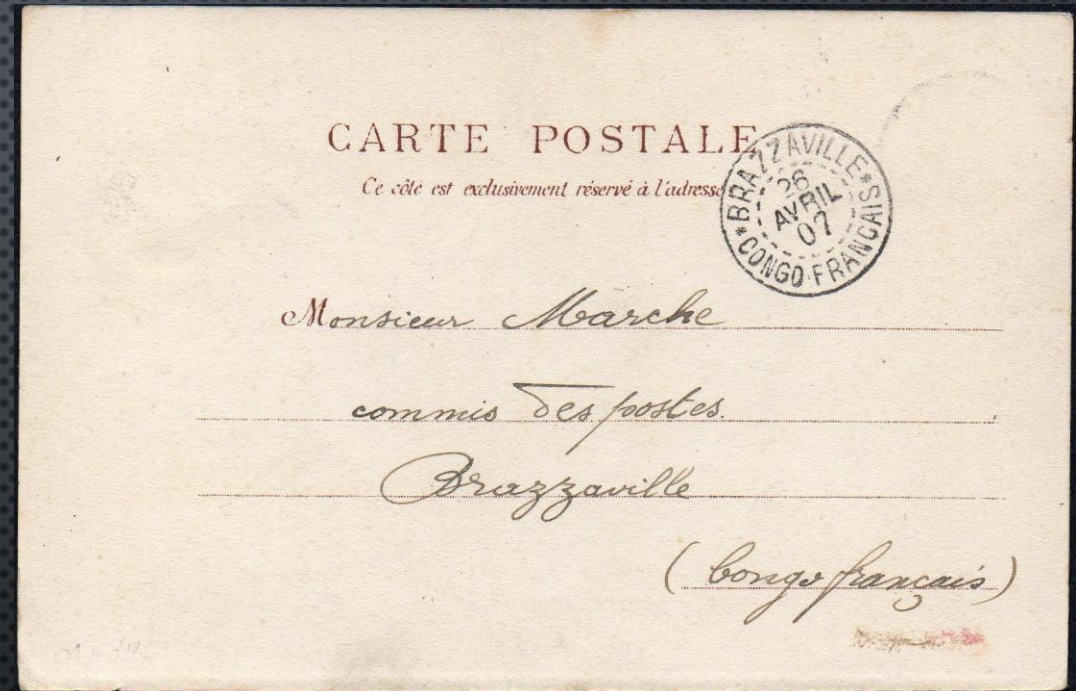 CARTE POSTALE
Ce côté est exclusivement réservé à l'adresse
*BRAZZAVILLE*
26
AVRIL
07
CONGO FRANCAIS
Monsieur Marche
commis des postes.
Brazzaville
(Congo français)